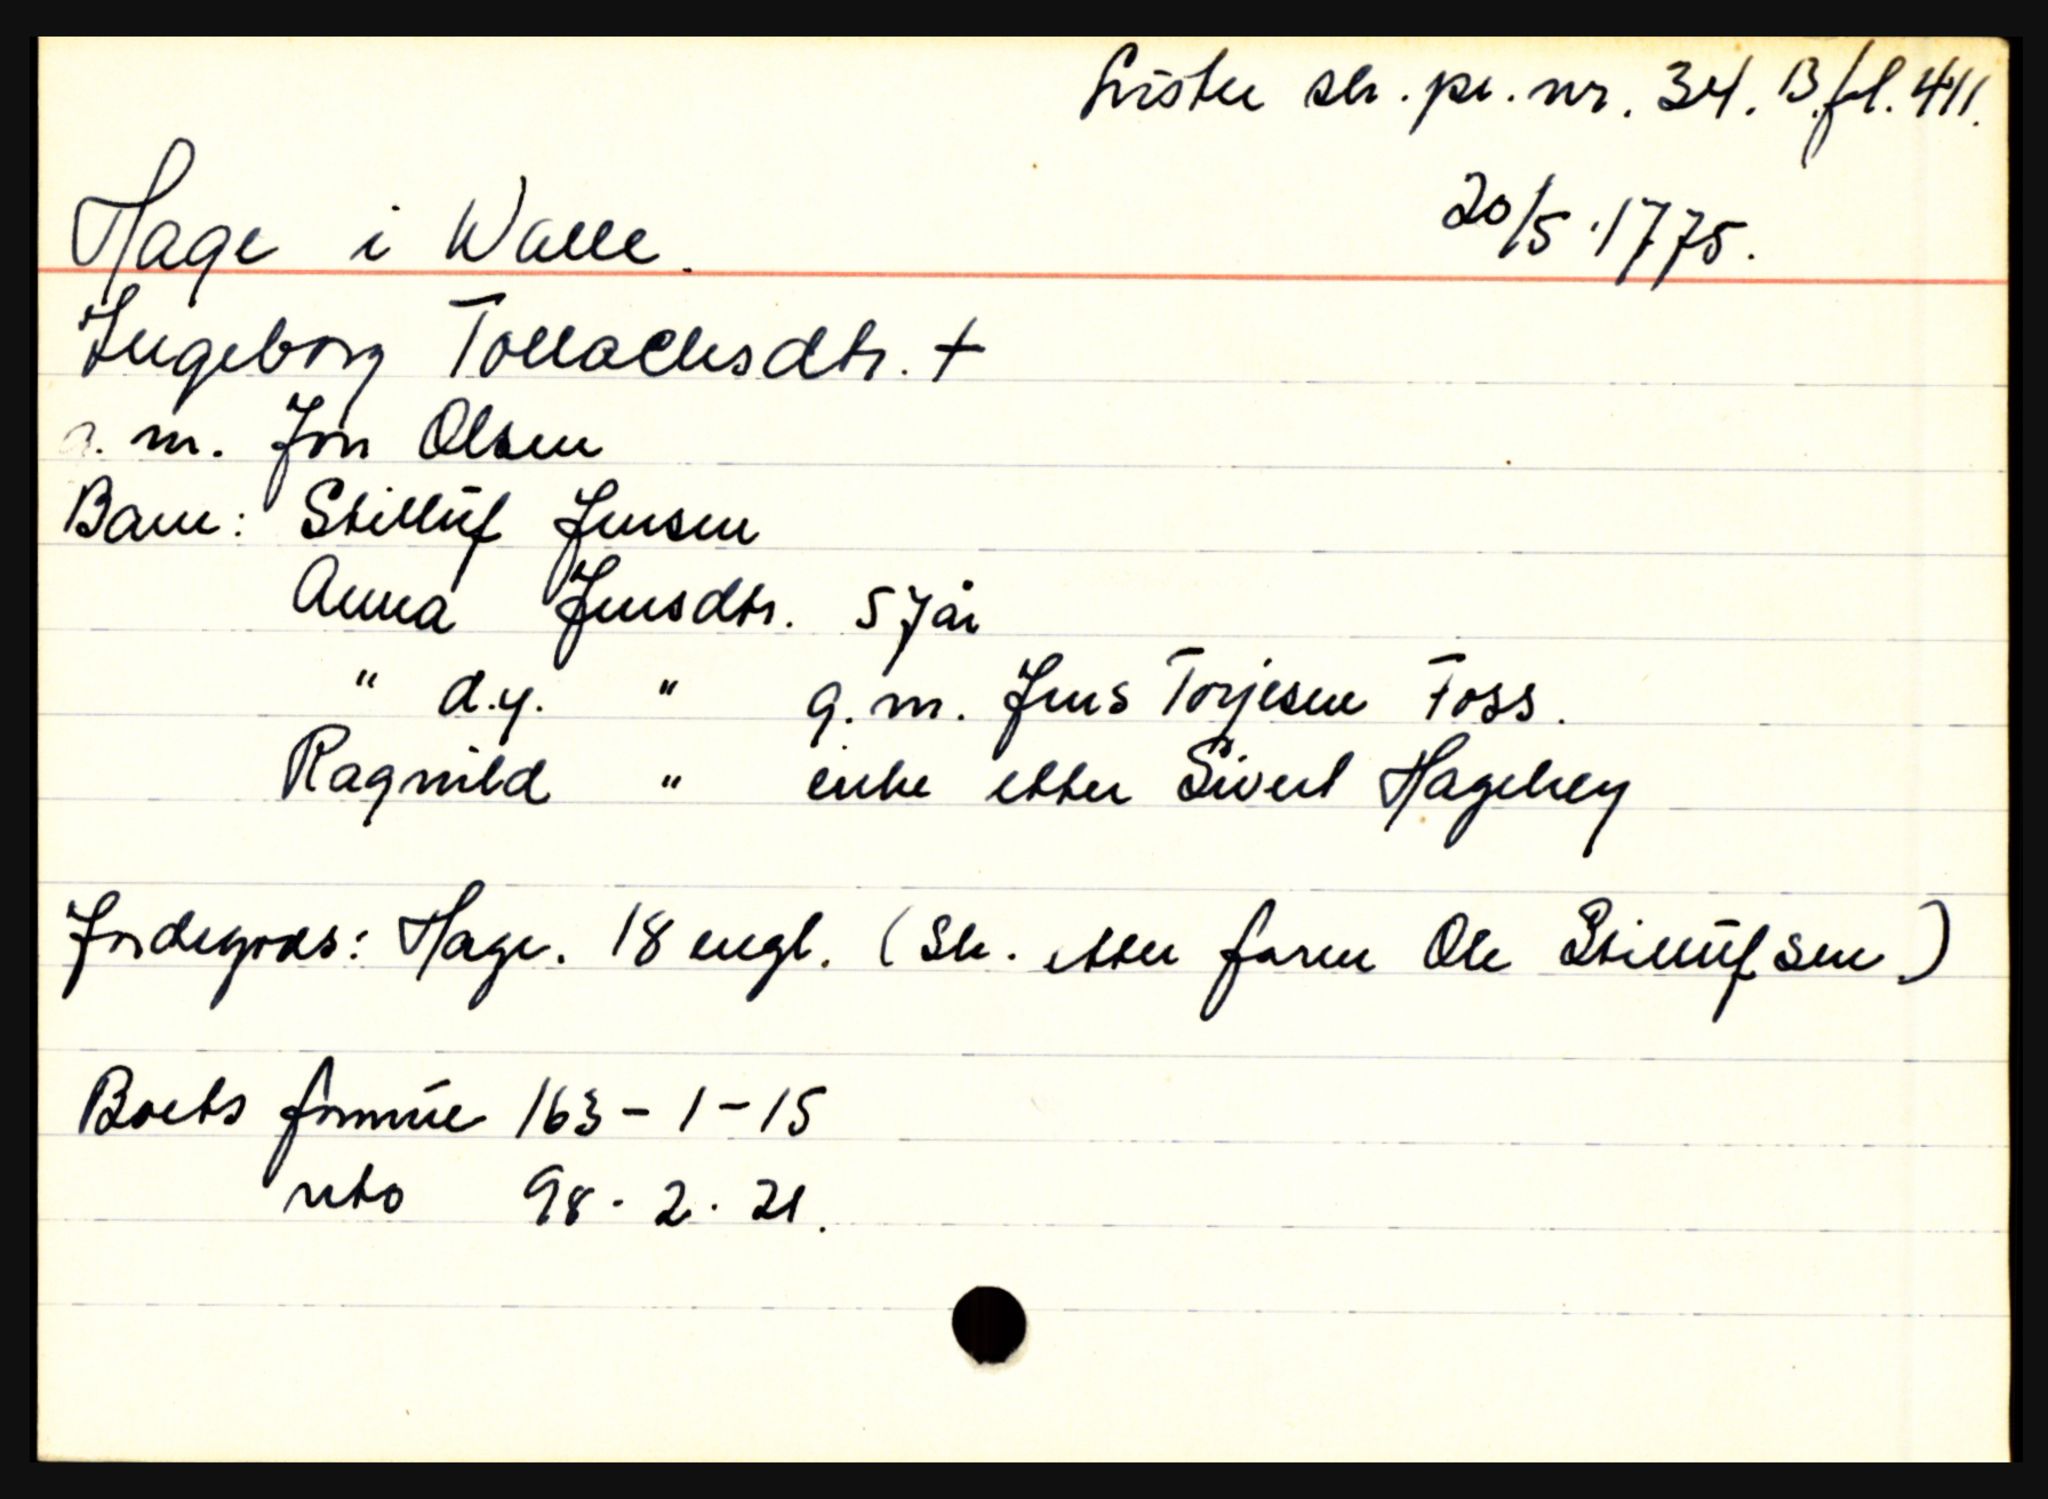 Lister sk. pr. nr. 34. B. fol. 411.
Hage i Walle. 20/5 1775.
Ingeborg Tollachsdtr. +
g. m. Jon Olsen
Barn: Stilluf Jensen
Anna Jensdtr. 57 år
" d.y. " g. m. Jens Torjesen Foss.
Ragnild " enke etter Sivert Hagekey
Jordegods: Hage. 18 engl. (Sk. etter faren Ole Stillufsen)
Boets formue 163 - 1 - 15
neto 98 . 2 . 21.